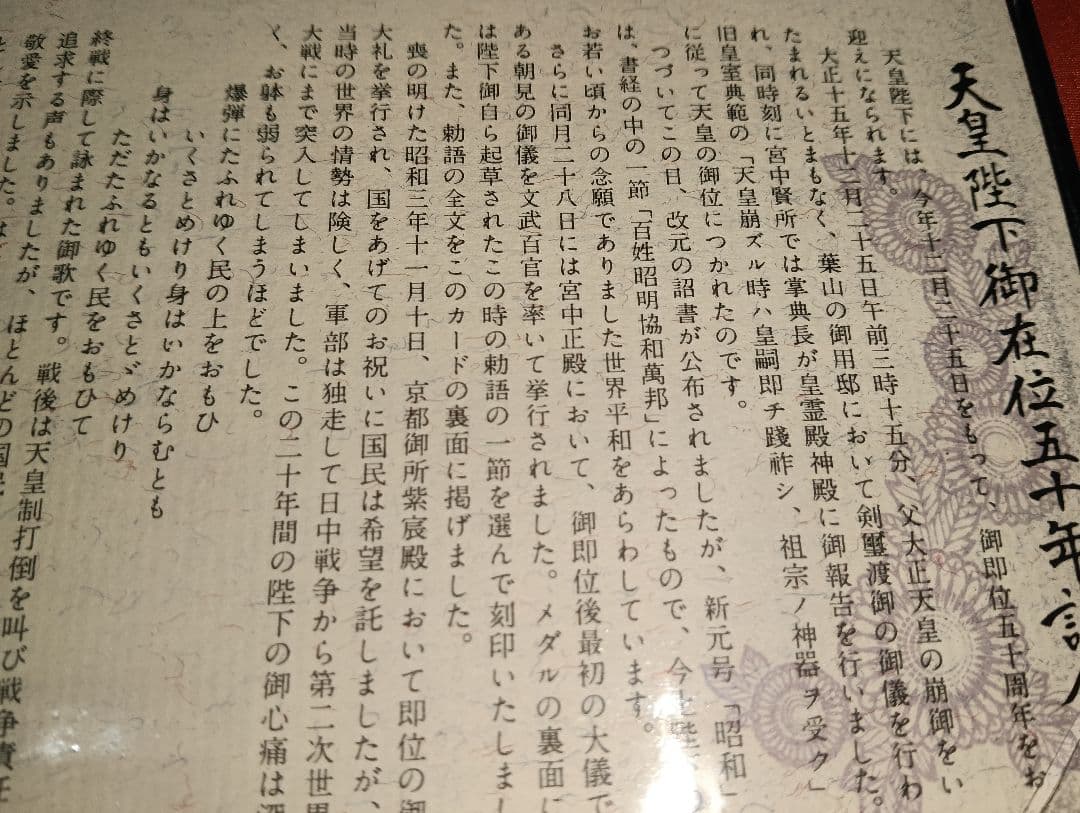 天皇陛下御在位五十年記
天皇陛下には、今年十二月二十五日をもって、御即位五十周年をお
迎えになられます。
大正十五年十二月二十五日午前三時十五分、父大正天皇の崩御をい
たまれるいとまもなく、葉山の御用邸において剣璽渡御の御儀を行わ
れ、同時刻に宮中賢所では掌典長が皇霊殿神殿に御報告を行いました。
旧皇室典範の「天皇崩ズル時ハ皇嗣即チ践祚シ、祖宗ノ神器ヲ受ク」
に従って天皇の御位につかれたのです。
つづいてこの日、改元の詔書が公布されましたが、新元号「昭和」
は、書経の中の一節「百姓昭明協和萬邦」によったもので、今上陛下の
お若い頃からの念願でありました世界平和をあらわしています。
さらに同月二十八日には宮中正殿において、御即位後最初の大儀で
ある朝見の御儀を文武百官を率いて挙行されました。メダルの裏面に
は陛下御自ら起草されたこの時の勅語の一節を選んで刻印いたしまし
た。また、勅語の全文をこのカードの裏面に掲げました。
喪の明けた昭和三年十一月十日、京都御所紫宸殿において即位の御
大礼を挙行され、国をあげてのお祝いに国民は希望を託しましたが、
当時の世界の情勢は険しく、軍部は独走して日中戦争から第二次世界
大戦にまで突入してしまいました。この二十年間の陛下の御心痛は深
く、お躰も弱られてしまうほどでした。
爆弾にたふれゆく民の上をおもひ
いくさとめけり身はいかならむとも
身はいかなるともいくさとゞめけり
ただたふれゆく民をおもひて
終戦に際して詠まれた御歌です。戦後は天皇制打倒を叫び戦争責任
追求する声もありましたが、ほとんどの国民
敬愛を示しました。